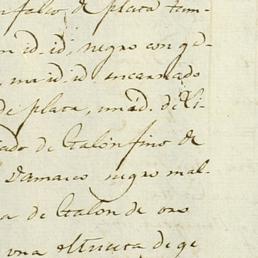 falso de plata tam-
id. id. negro con ga-
id. id. encarnado
de plata, una id. de Li-
ado de Galon fino de
Damasco negro mal-
a de Galon de oro
una Muceta de ge